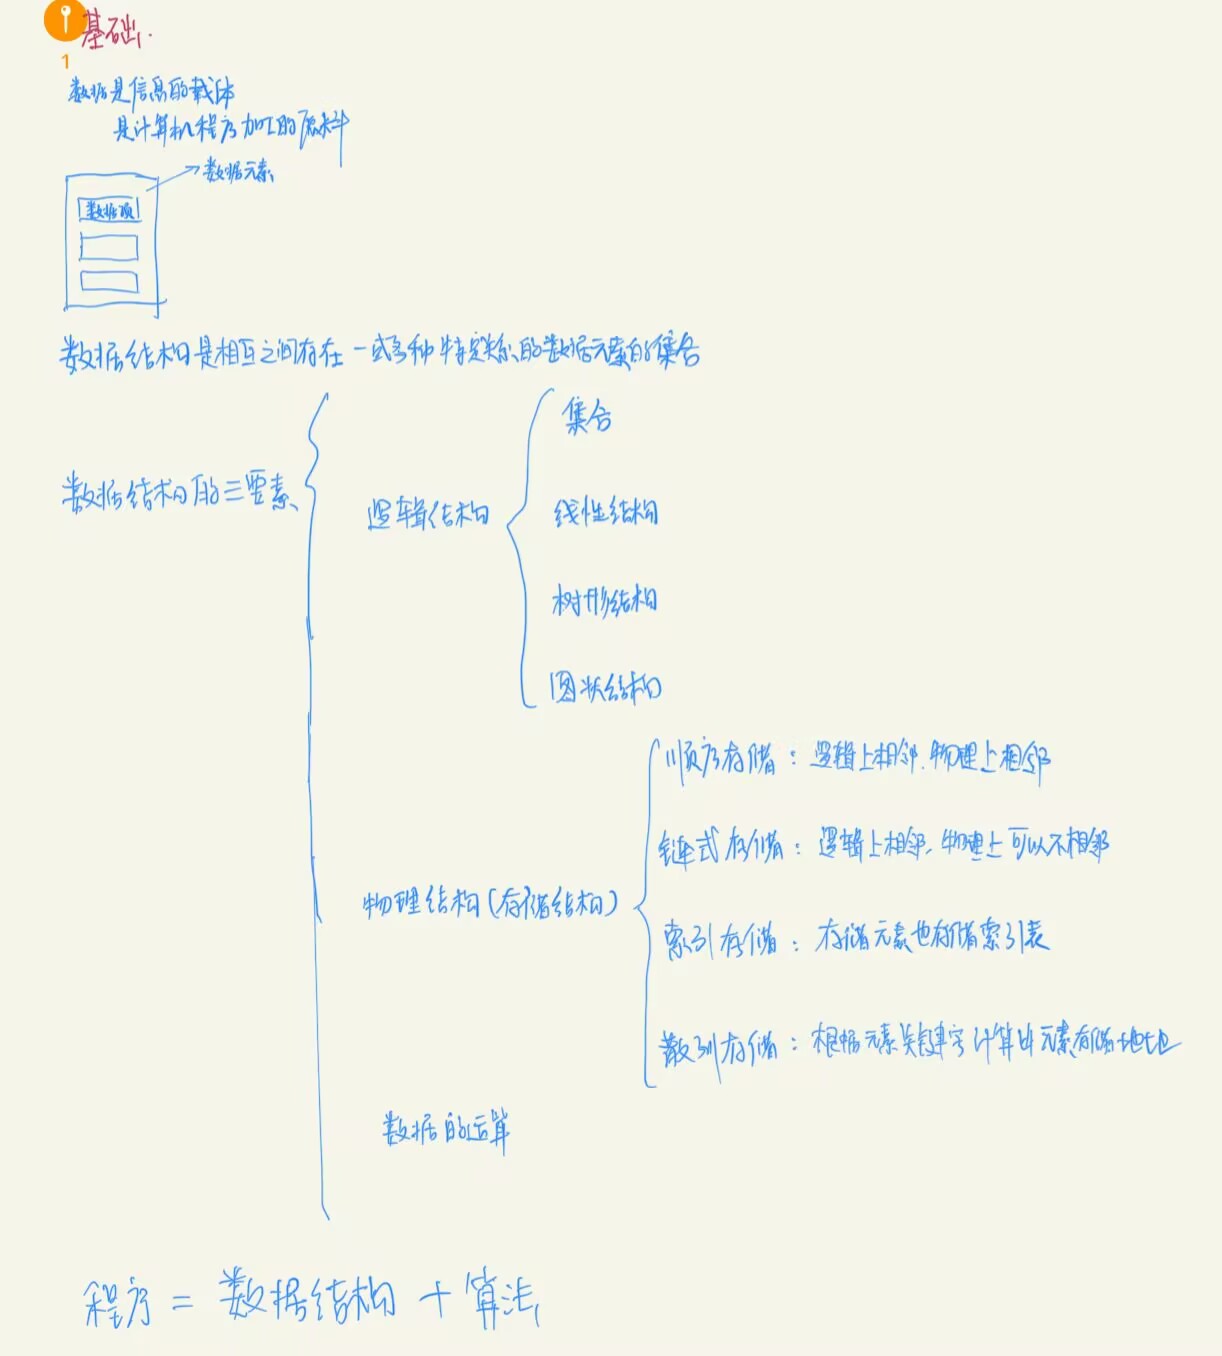 基础
1
数据是信息的载体
是计算机程序加工的原料
数据元素
数据项
数据结构是相互之间存在一或多种特定关系的数据元素的集合
数据结构的三要素
逻辑结构
集合
线性结构
树形结构
图状结构
物理结构(存储结构)
顺序存储：逻辑上相邻.物理上相邻
链式存储：逻辑上相邻、物理上可以不相邻
索引存储：存储元素也存储索引表
散列存储：根据元素关键字计算出元素存储地址
数据的运算
程序 = 数据结构 + 算法